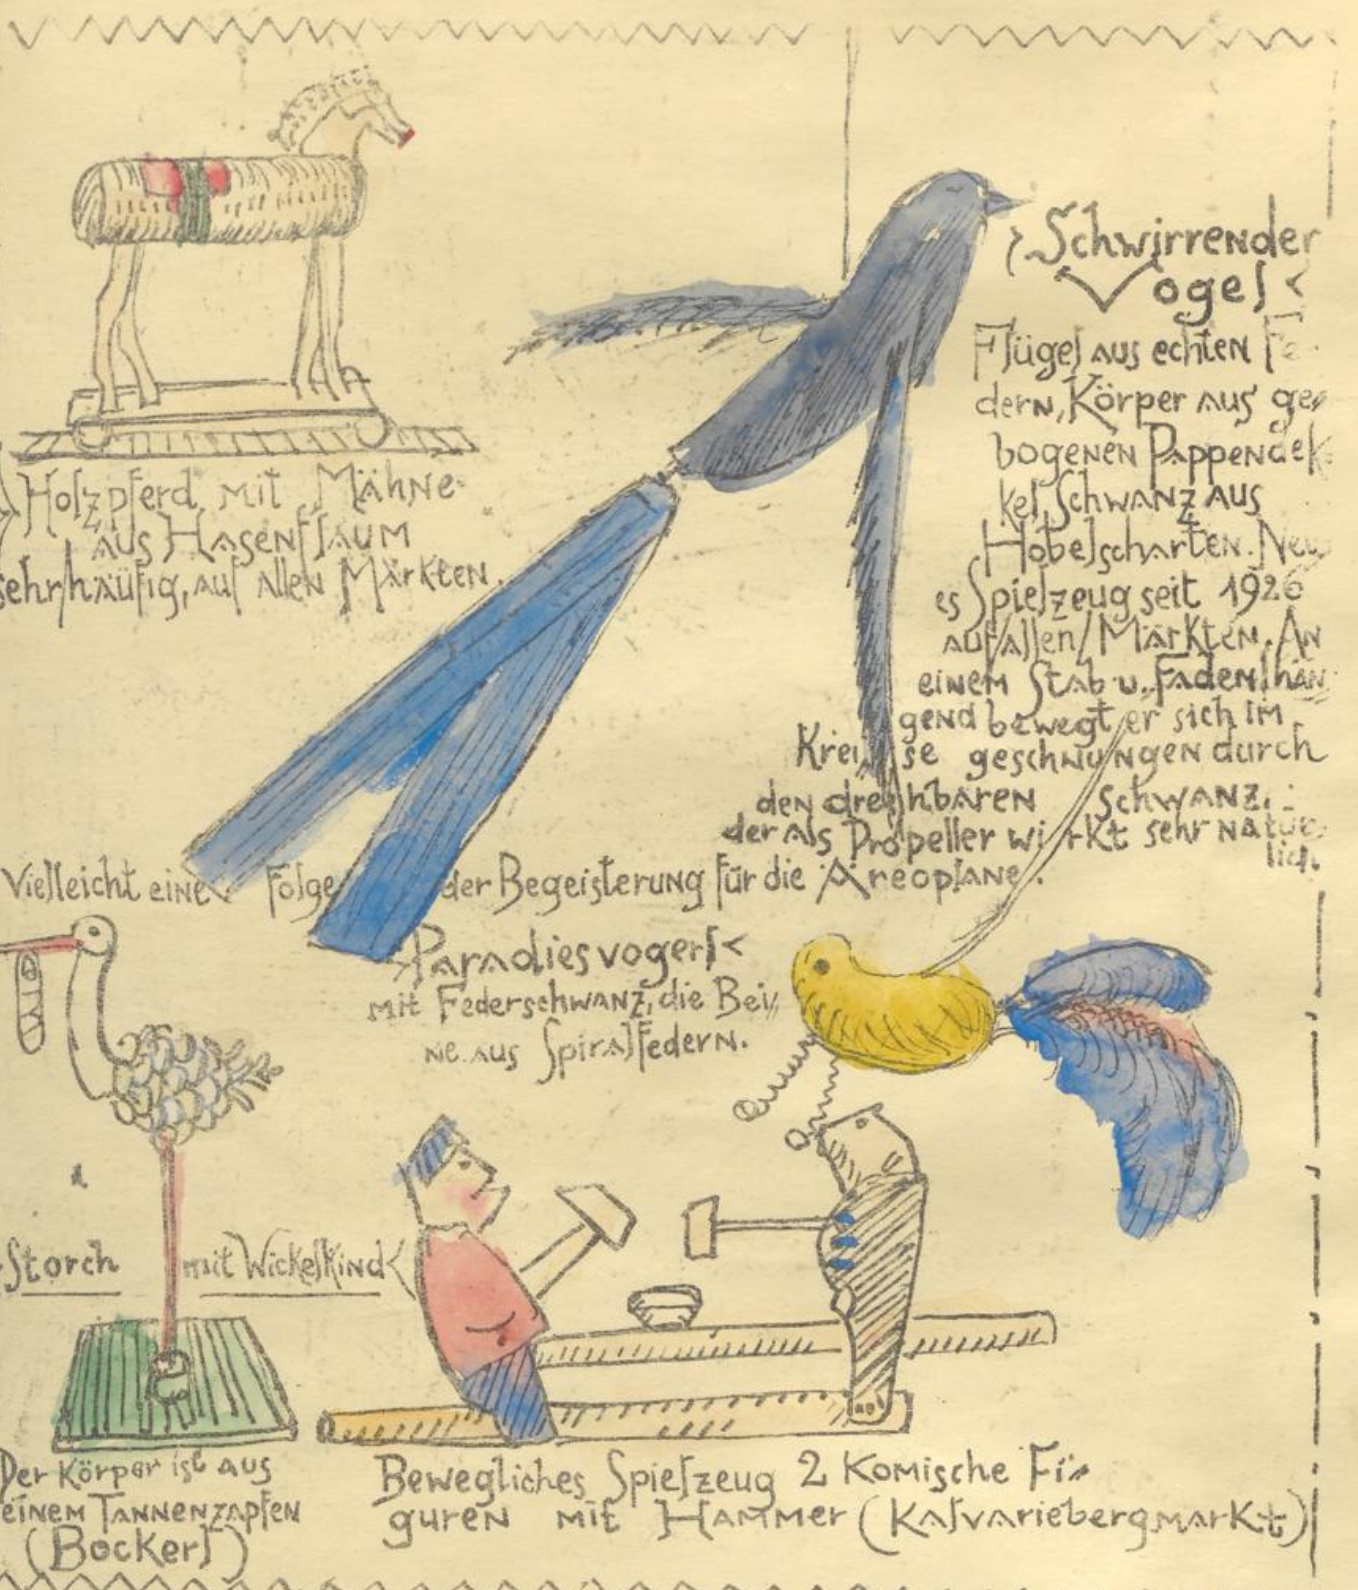 Holzpferd mit Mähne
aus Hasenflaum
sehr häufig, auf allen Märkten.
>Schwirrender
Vogel<
Flügel aus echten Fe
dern, Körper aus ge,,
bogenen Pappendek
kel, Schwanz aus
Hobelscharten. Neu,,
es Spielzeug seit 1926
auf allen Märkten. An
einem Stab u. Faden hän
gend bewegt er sich im
Kreise geschwungen durch
den drehbaren Schwanz,
der als Propeller wirkt sehr natür,,
lich.
Vielleicht eine Folge der Begeisterung für die Areoplane.
>Paradiesvogerl<
mit Federschwanz, die Bei,,
ne aus Spiralfedern.
Storch mit Wickelkind<
Der Körper ist aus
einem Tannenzapfen
(Bockerl)
Bewegliches Spielzeug 2 Komische Fi,,
guren mit Hammer (Kalvariebergmarkt)